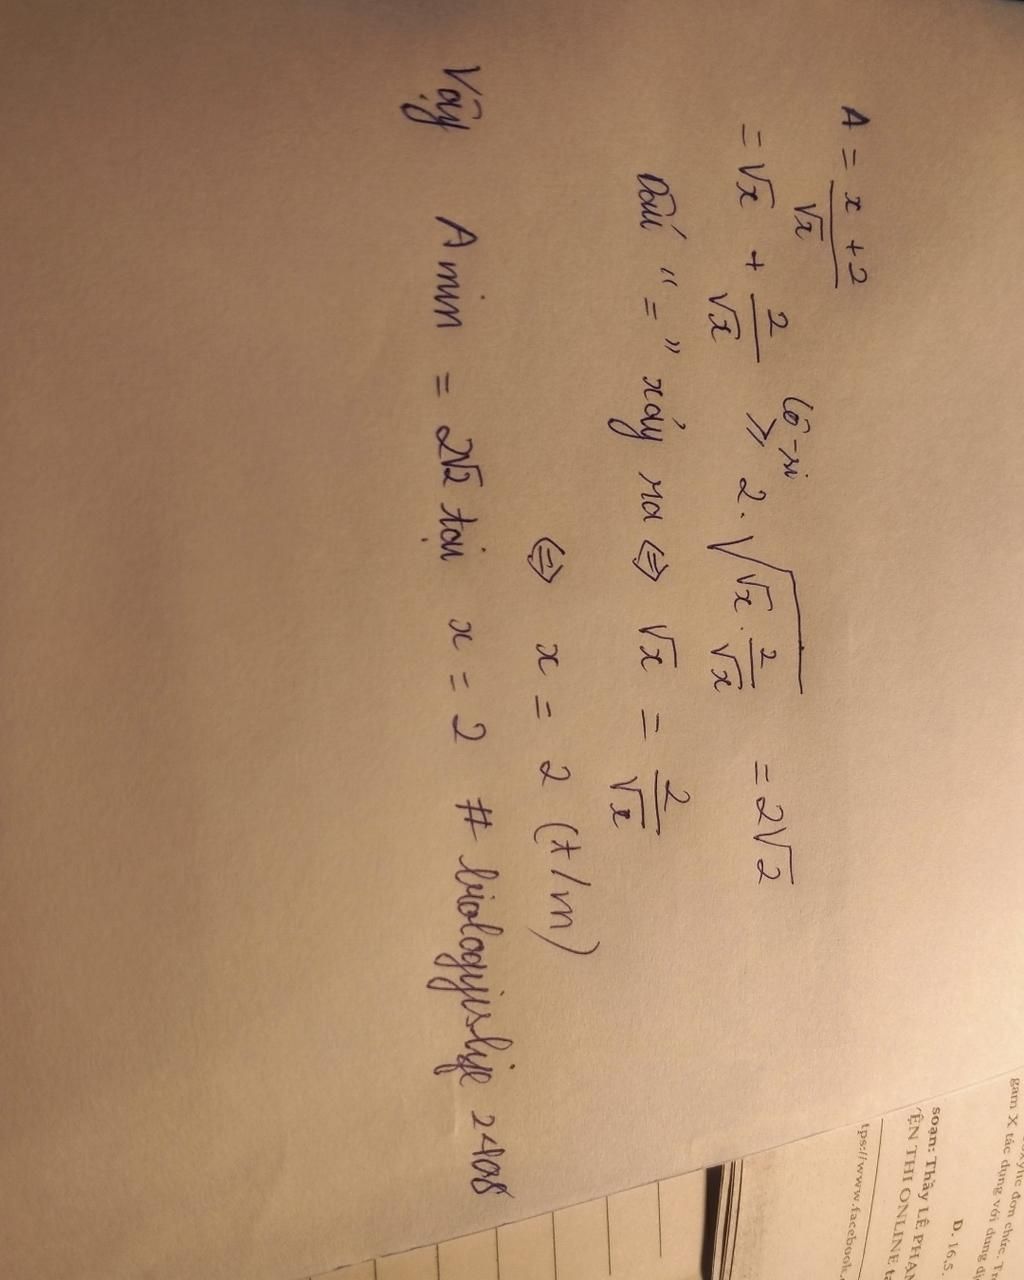 A = x + 2 / √x
= √x + 2/√x ≥ 2. √(√x . 2/√x) = 2√2
Cô-si
Dấu " = " xảy ra ⇔ √x = 2/√x
⇔ x = 2 (t/m)
Vậy A min = 2√2 tại x = 2 # biologyislife 2408
đơn chức. Tr
gam X tác dụng với dung d
D. 16,5.
soạn: Thầy LÊ PHẠ
YỆN THI ONLINE
tps://www.facebook.